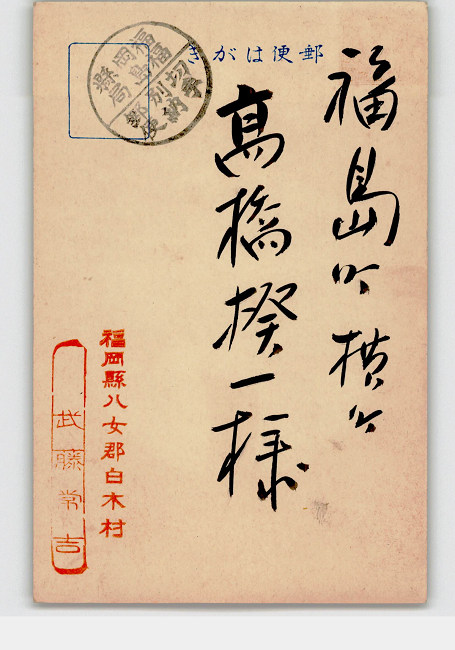 郵便はがき
福岡縣
福島局
切手別納
郵便
福島町横町
高橋揆一様
福岡縣八女郡白木村
武藤常吉